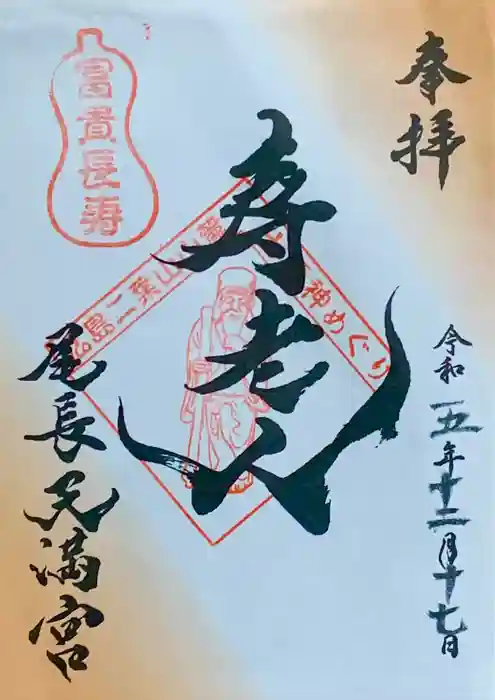 奉拝
令和五年十二月十七日
寿老人
富貴長寿
広島二葉山山麓七福神めぐり
尾長天満宮